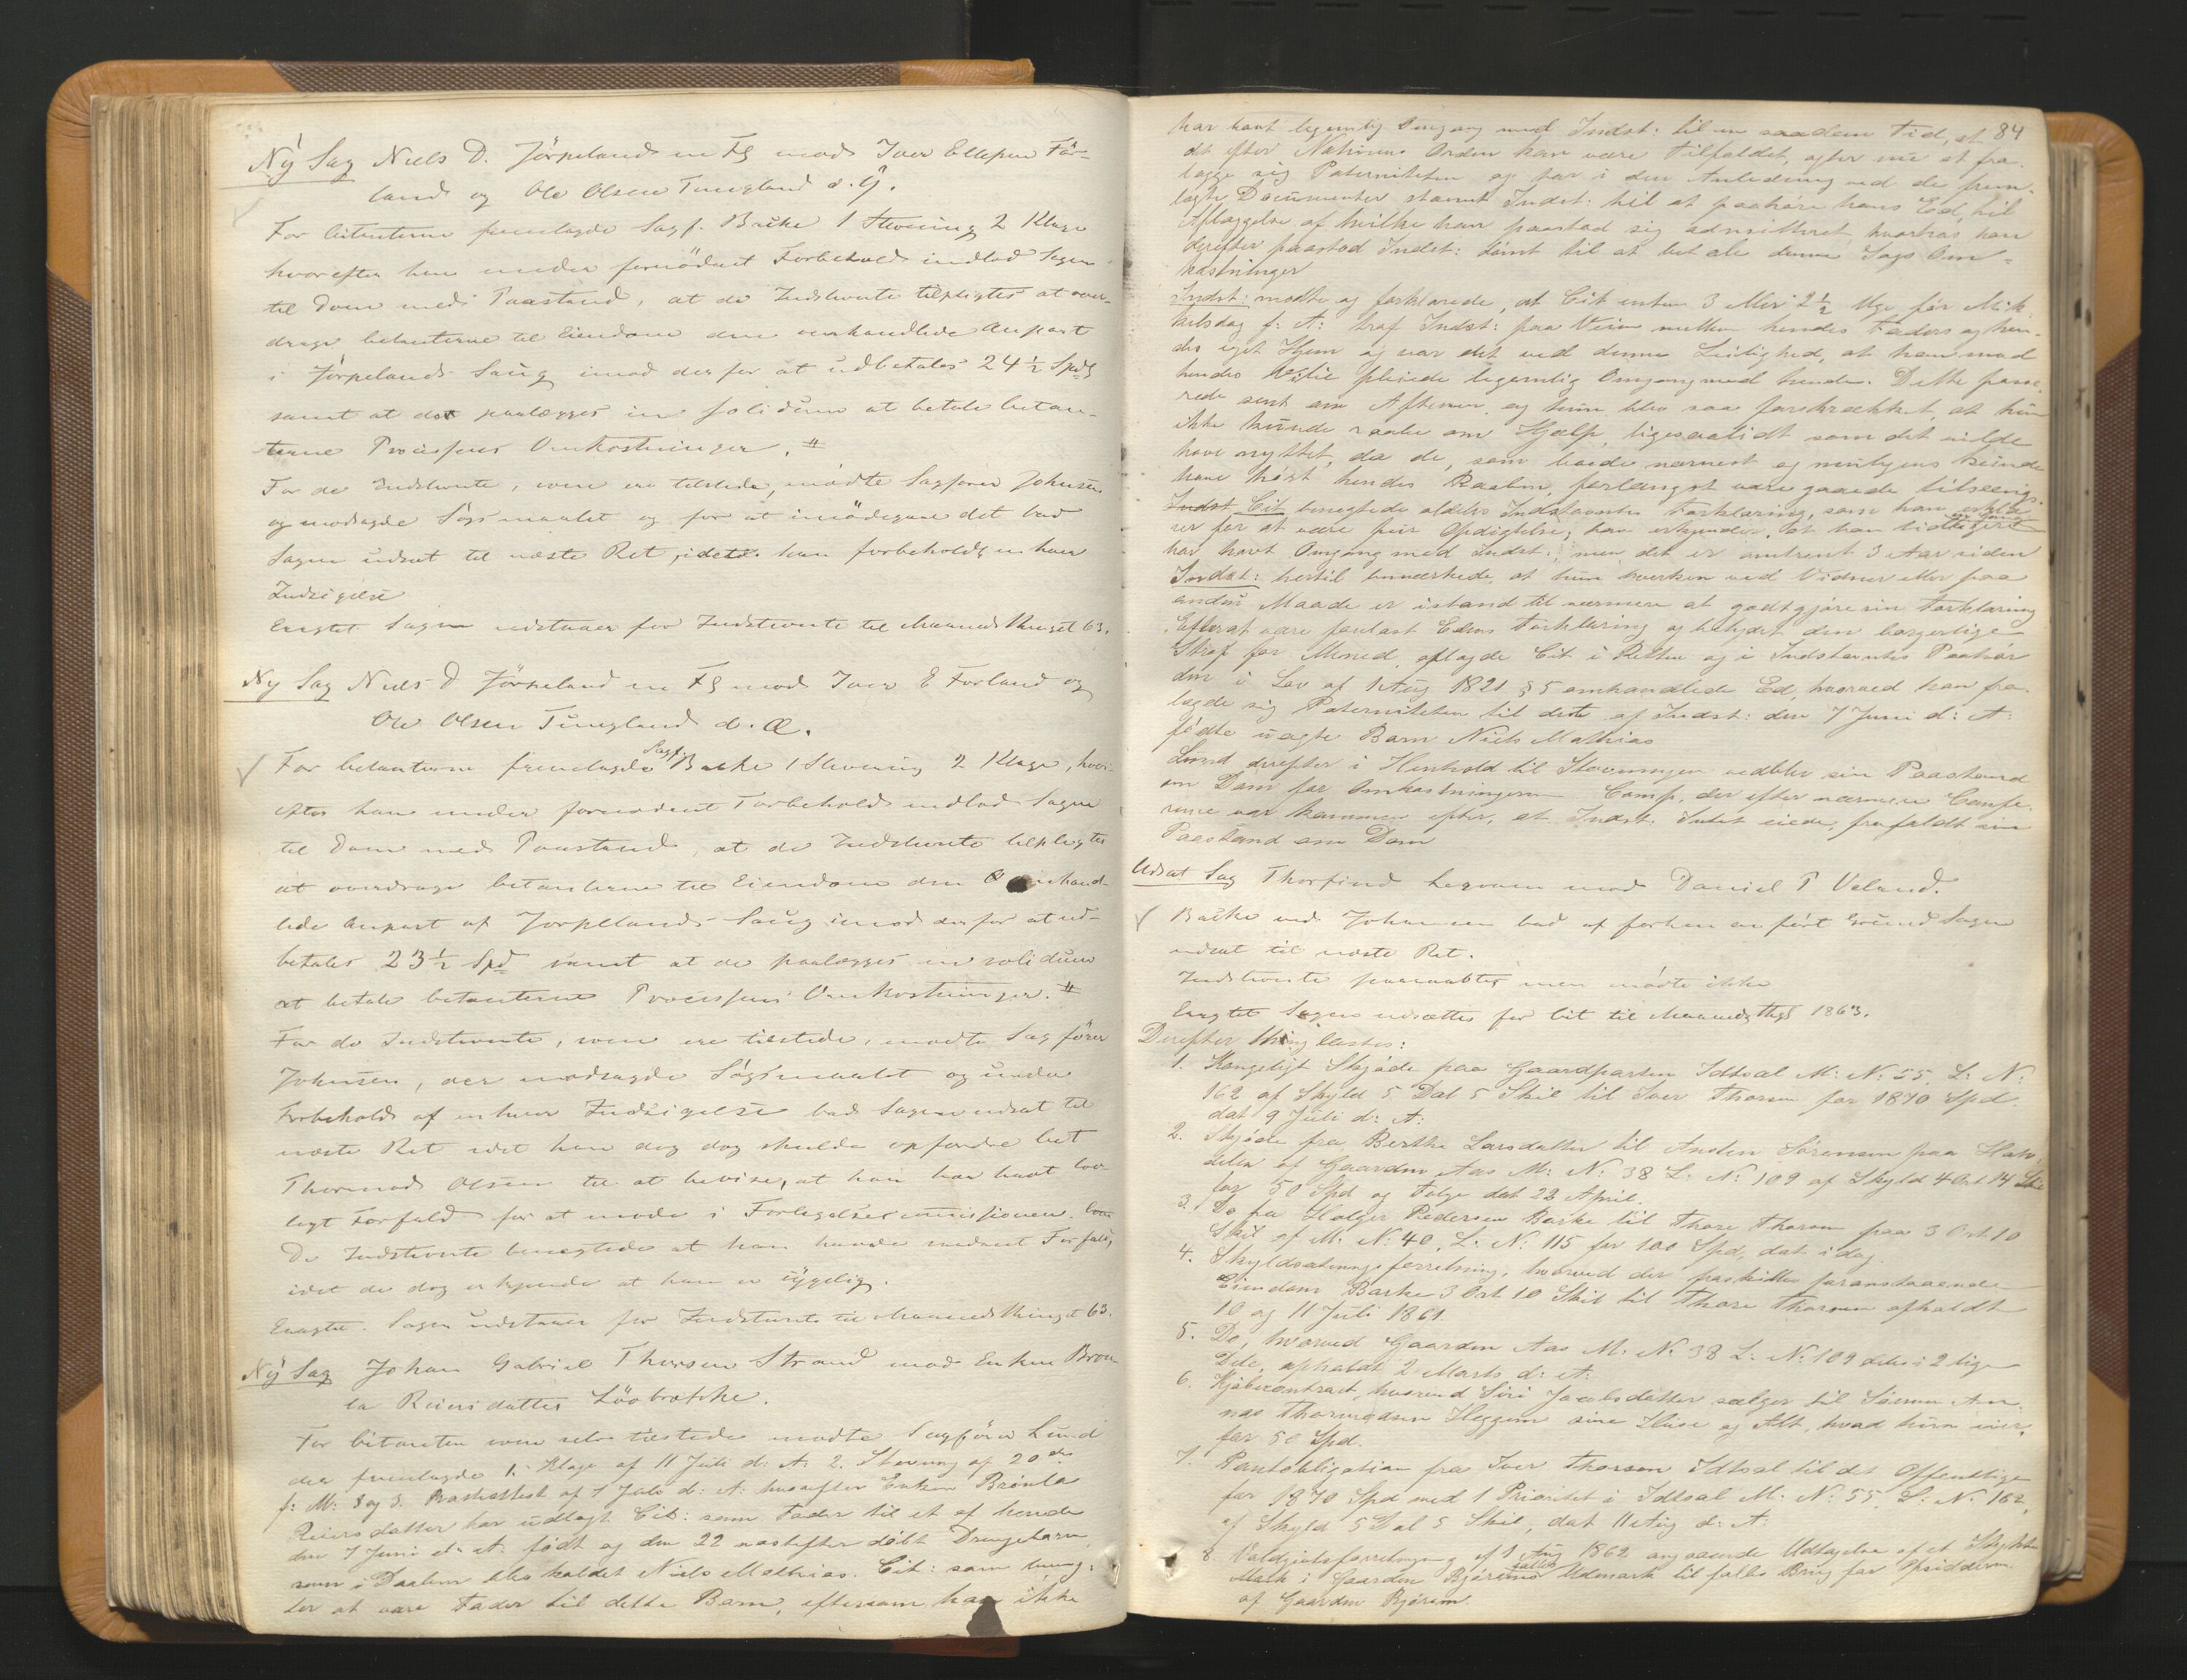 Ny Sag Niels D. Jörpeland m Fl mod Iver Ellefsen För-
land og Ole Olsen Tungland d. Y.
For Citanterne fremlagde Sagf. Bache 1 Stevning 2 Klage
hvorefter han under fornödent Forbehold indlod Sagen
til Dom med Paastand, at de Indstevnte tilpligtes at over-
drage Citanterne til Eiendom den omhandlede Anpart
i Jörpelands Saug imod derfor at udbetales 24 1/2 Spd
samt at det paalægges in solidum at betale Citan-
terne Processens Omkostninger. #
For de Indstevnte, som ere tilstede, mödte Sagförer Johnsen
og modsagde Sögsmaalet og for at imödegaae det bad
Sagen udsat til næste Ret, idet han forbeholdt enhver
Indsigelse
Eragtet Sagen udstaaer for Indstevnte til Maanedsthinget 63.
Ny Sag Niels D Jörpeland m Fl mod Iver E Forland og
Ole Olsen Tungland d. Æ.
For Citanterne fremlagde Sagf. Bache 1 Stevning 2 Klage, hvor-
efter han under fornödent Forbehold indlod Sagen
til Dom med Paastand, at de Indstevnte tilpligtes
at overdrage Citanterne til Eiendom den omhand-
lede Anpart af Jorpelands Saug imod derfor at ud-
betales 23 1/2 Spd samt at de paalægges in solidum
at betale Citanterne Processens Omkostninger. #
For de Indstevnte, som ere tilstede, mödte Sagförer
Johnsen, der modsagde Sögsmaalet og under
Forbehold af enhver Indsigelse bad Sagen udsat til
næste Ret idet han dog dog skulde opfordre Cit
Thormod Olsen til at bevise, at han har havt lov-
ligt Forfald for at möde i Forligelsescommissionen.
De Indstevnte benegtede at han havde saadant Forfald,
idet de dog erkjende at han er sygelig.
Eragtet. Sagen udstaaer for Indstevnte til Maanedsthinget 63.
Ny Sag Johan Gabriel Thorsen Strand mod Enken Bron
la Reiersdatter Löobrække.
For Citanten som selv tilstede mödte Sagförer Lund
der fremlagde 1. Klage af 11 Juli d: A: 2. Stevning af 20de
f: M: og 3. Præsteattest af 7 Juli d: A: hvorefter Enken Brönla
Reiersdatter har udlagt Cit: som Fader til et af hende
den 7 Juni d: A: födt og den 22 næstefter döbt Drengebarn
som i Daaben blev kaldet Niels Mathias. Cit: som benæg-
ter at være Fader til dette Barn, eftersom han ikke
84
har havt legemlig Omgang med Indst: til en saadan Tid, at
det efter Naturens Orden kan være Tilfældet, agter nu at fra-
lægge sig Paterniteten og har i den Anledning ved de frem-
lagte Documenter stevnt Indst: til at paahöre hans Ed, til
Aflæggelse af hvilken han paastod sig admitteret, hvorhos han
derefter paastod Indst: dömt til at betale denne Sags Om-
kostninger
Indst: mödte og forklarede, at Cit enten 3 eller 2 1/2 Uge för Mik-
kelsdag f: A: traf Indst: paa Veien mellem hendes Faders og hen-
des eget Hjem og var det ved denne Leilighed, at han mod
hendes Villie pleiede legemlig Omgang med hende. Dette passe-
rede sent om Aftenen, og hun blev saa forskrækket, at hun
ikke kunde raabe om Hjælp, ligesaalidt som det vilde
have nyttet, da de, som boede nærmest og muligens kunde
have hört hendes Raaben, forlængst vare gaaede tilsengs.
Indst Cit benegtede aldeles Indstevntes Forklaring, som han erklæ-
rer for at være pur Opdigtelse; han erkjender, at han tidligere en Gang
har havt Omgang med Indst:, men det er omtrent 3 Aar siden
Indst: hertil bemærkede, at hun hverken ved Vidner eller paa
anden Maade er istand til nærmere at godtgjöre sin Forklaring
Efterat være forelæst Edens Forklaring og betydet den borgerlige
Straf for Mened, aflagde Cit i Retten og i Indstevntes Paahör
den i Lov af 1 Aug 1821 § 5 omhandlede Ed, hvorved han fra-
lagde sig Paterniteten til dette af Indst: den 7 Juni d: A:
födte uægte Barn Niels Mathias
Lund derefter i Henhold til Stevningen vedblev sin Paastand
om Dom for Omkostningerne Comp. der efter nærmere Confe-
rence var kommen efter, at Indst. Intet eiede, frafaldt sin
Paastand om Dom
Udsat Sag Thorfind mod Daniel T Veland.
Bache ved Johnsen bad af forhen anfört Grund Sagen
udsat til næste Ret.
Indstevnte paaraabtes men mödte ikke
Eragtet Sagen udsættes for Cit til Maanedsthgt 1863.
Derefter thinglæstes:
1. Kongeligt Skjöde paa Gaardparten Idtsal M: N: 55. L: N:
162 af Skyld 5 Dal 5 Skil til Iver Thorsen for 1870 Spd
dat 9 Juli d: A:
2. Skjöde fra Berthe Larsdatter til Anders Sörensen paa Halv-
delen af Gaarden Aas M: N: 38 L: N: 109 af Skyld 4 Ort 14 Skil
for 50 Spd og Folge dat 23 April.
3. Do fra Holger Pedersen Barke til Thore Thorsen paa 3 Ort 10
Skil af M: N: 40. L: N: 115 for 100 Spd, dat idag
4. Skyldsætningsforretning, hvorved der fraskilles foranstaaende
Eiendom Barke 3 Ort 10 Skil til Thore Thorsen afholdt
10 og 11 Juli 1861.
5. Do, hvorved Gaarden Aas M: N: 38 L: N: 109 deles i 2 lige
Dele, afholdt 2 Marts d: A:
6. Kjöbecontract, hvorved Siri Jacobsdatter sælger til Sören An-
nas Thormodsen Heggem sine Huse og Alt, hvad hun eier,
for 50 Spd.
7. Pantobligation fra Iver Thorsen Idtsal til det Offentlige
for 1870 Spd med 1 Prioritet i Idtsal M: N: 55. L: N: 162,
af Skyld 5 Dal 5 Skil, dat 11 Aug d: A:
8. af 1 Aug 1862 angaaende Udtagelse af et Stykke
Mark i Gaarden Björeims fælles Udmark til fælles Brug for Opsidderne
af Gaarden Björeim.